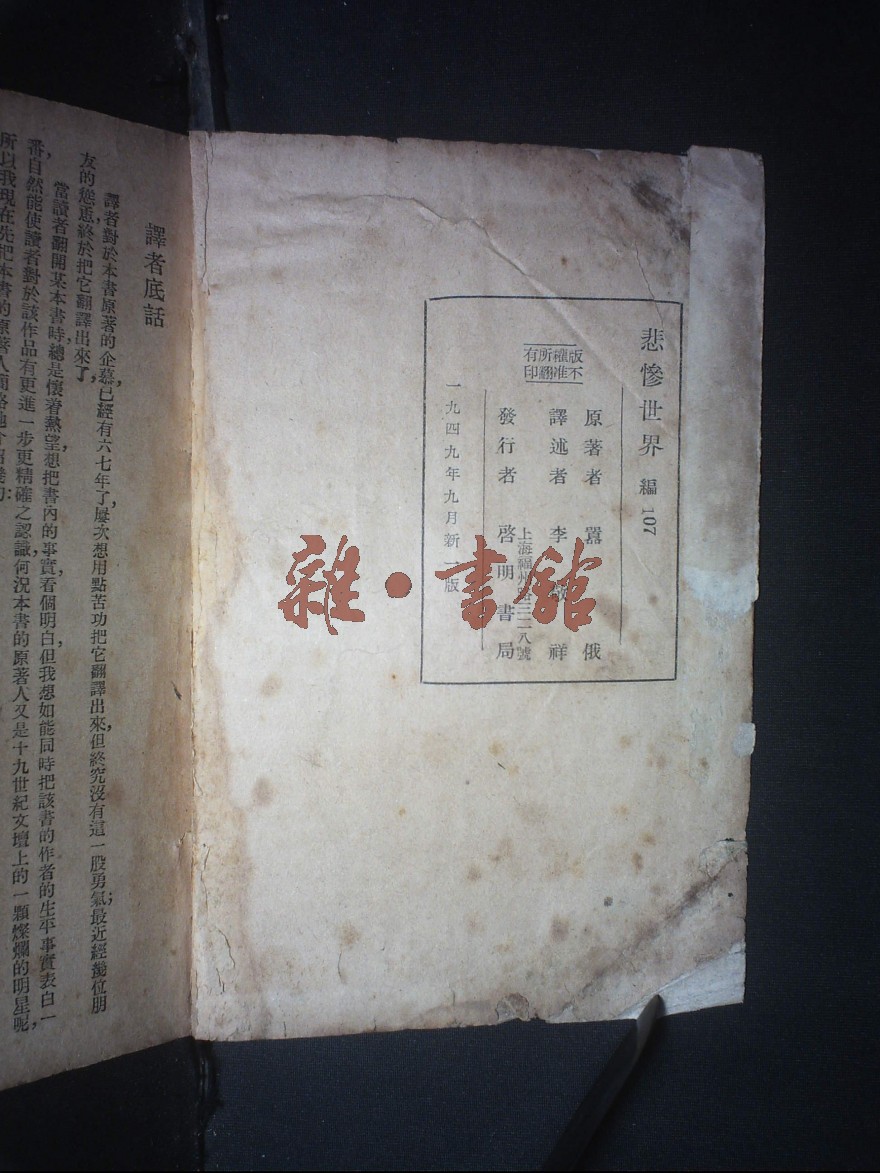 悲慘世界 編 107
版權所有
不准翻印
原著者 囂俄
譯述者 李 祥
發行者 啓明書局
上海福州路三二八號
一九四九年九月新一版
雜·書館
譯者底話
譯者對於本書原著的企慕,已經有六七年了,屢次想用點苦功把它翻譯出來,但終究沒有這一股勇氣;最近經幾位朋
友的慫恿,終於把它翻譯出來了。
當讀者翻開某本書時,總是懷着熱望,想把書內的事實看個明白,但我想如能同時把該書的作者的生平事實表白一
番,自然能使讀者對於該作品有更進一步更精確之認識,何況本書的原著人又是十九世紀文壇上的一顆燦爛的明星呢,
所以我現在先把本書的原著人簡略地介紹幾句: